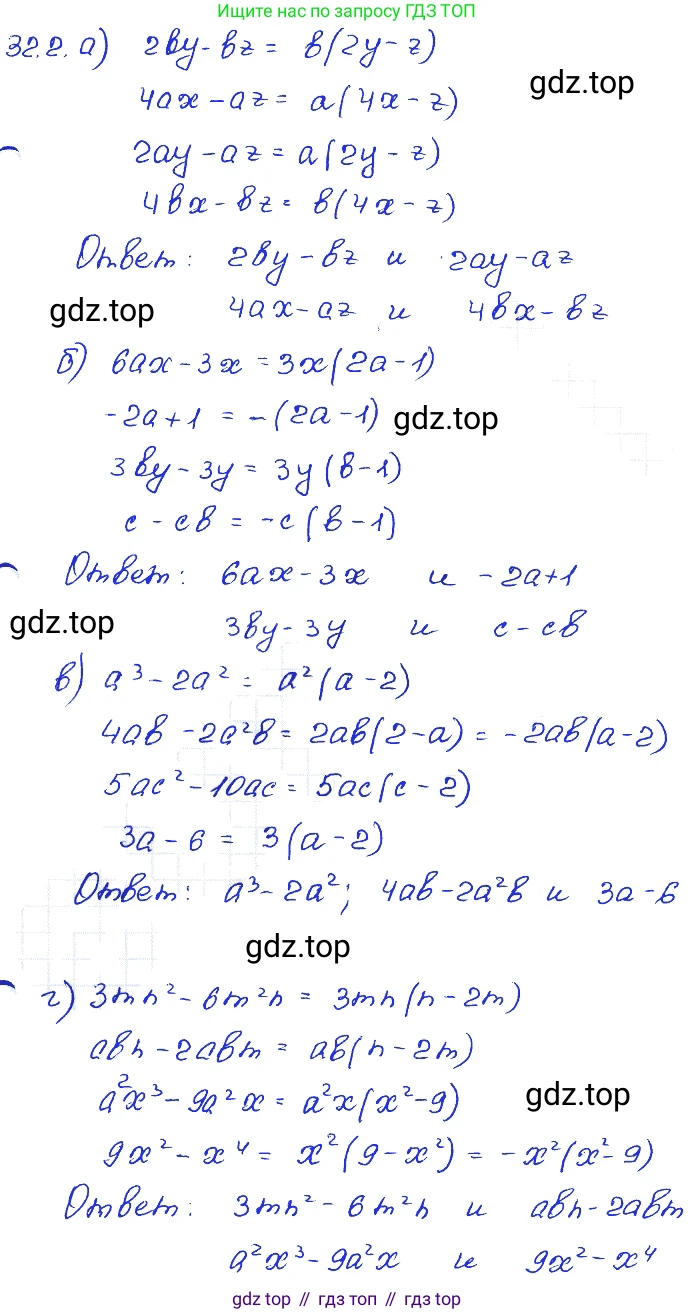 Ищите нас по запросу ГДЗ ТОП
32.2. а) 2by - bz = b(2y - z)
gdz.top
4ax - az = a(4x - z)
2ay - az = a(2y - z)
4bx - bz = b(4x - z)
Ответ: 2by - bz и 2ay - az
gdz.top
4ax - az и 4bx - bz
б) 6ax - 3x = 3x(2a - 1)
-2a + 1 = -(2a - 1)
gdz.top
3by - 3y = 3y(b - 1)
c - cb = -c(b - 1)
Ответ: 6ax - 3x и -2a + 1
gdz.top
3by - 3y и c - cb
в) a³ - 2a² = a²(a - 2)
4ab - 2a²b = 2ab(2 - a) = -2ab(a - 2)
5ac² - 10ac = 5ac(c - 2)
3a - 6 = 3(a - 2)
Ответ: a³ - 2a²; 4ab - 2a²b и 3a - 6
gdz.top
г) 3mn² - 6m²n = 3mn(n - 2m)
abn - 2abm = ab(n - 2m)
a²x³ - 9a²x = a²x(x² - 9)
gdz.top
9x² - x⁴ = x²(9 - x²) = -x²(x² - 9)
Ответ: 3mn² - 6m²n и abn - 2abm
a²x³ - 9a²x и 9x² - x⁴
gdz.top // гдз топ // gdz.top